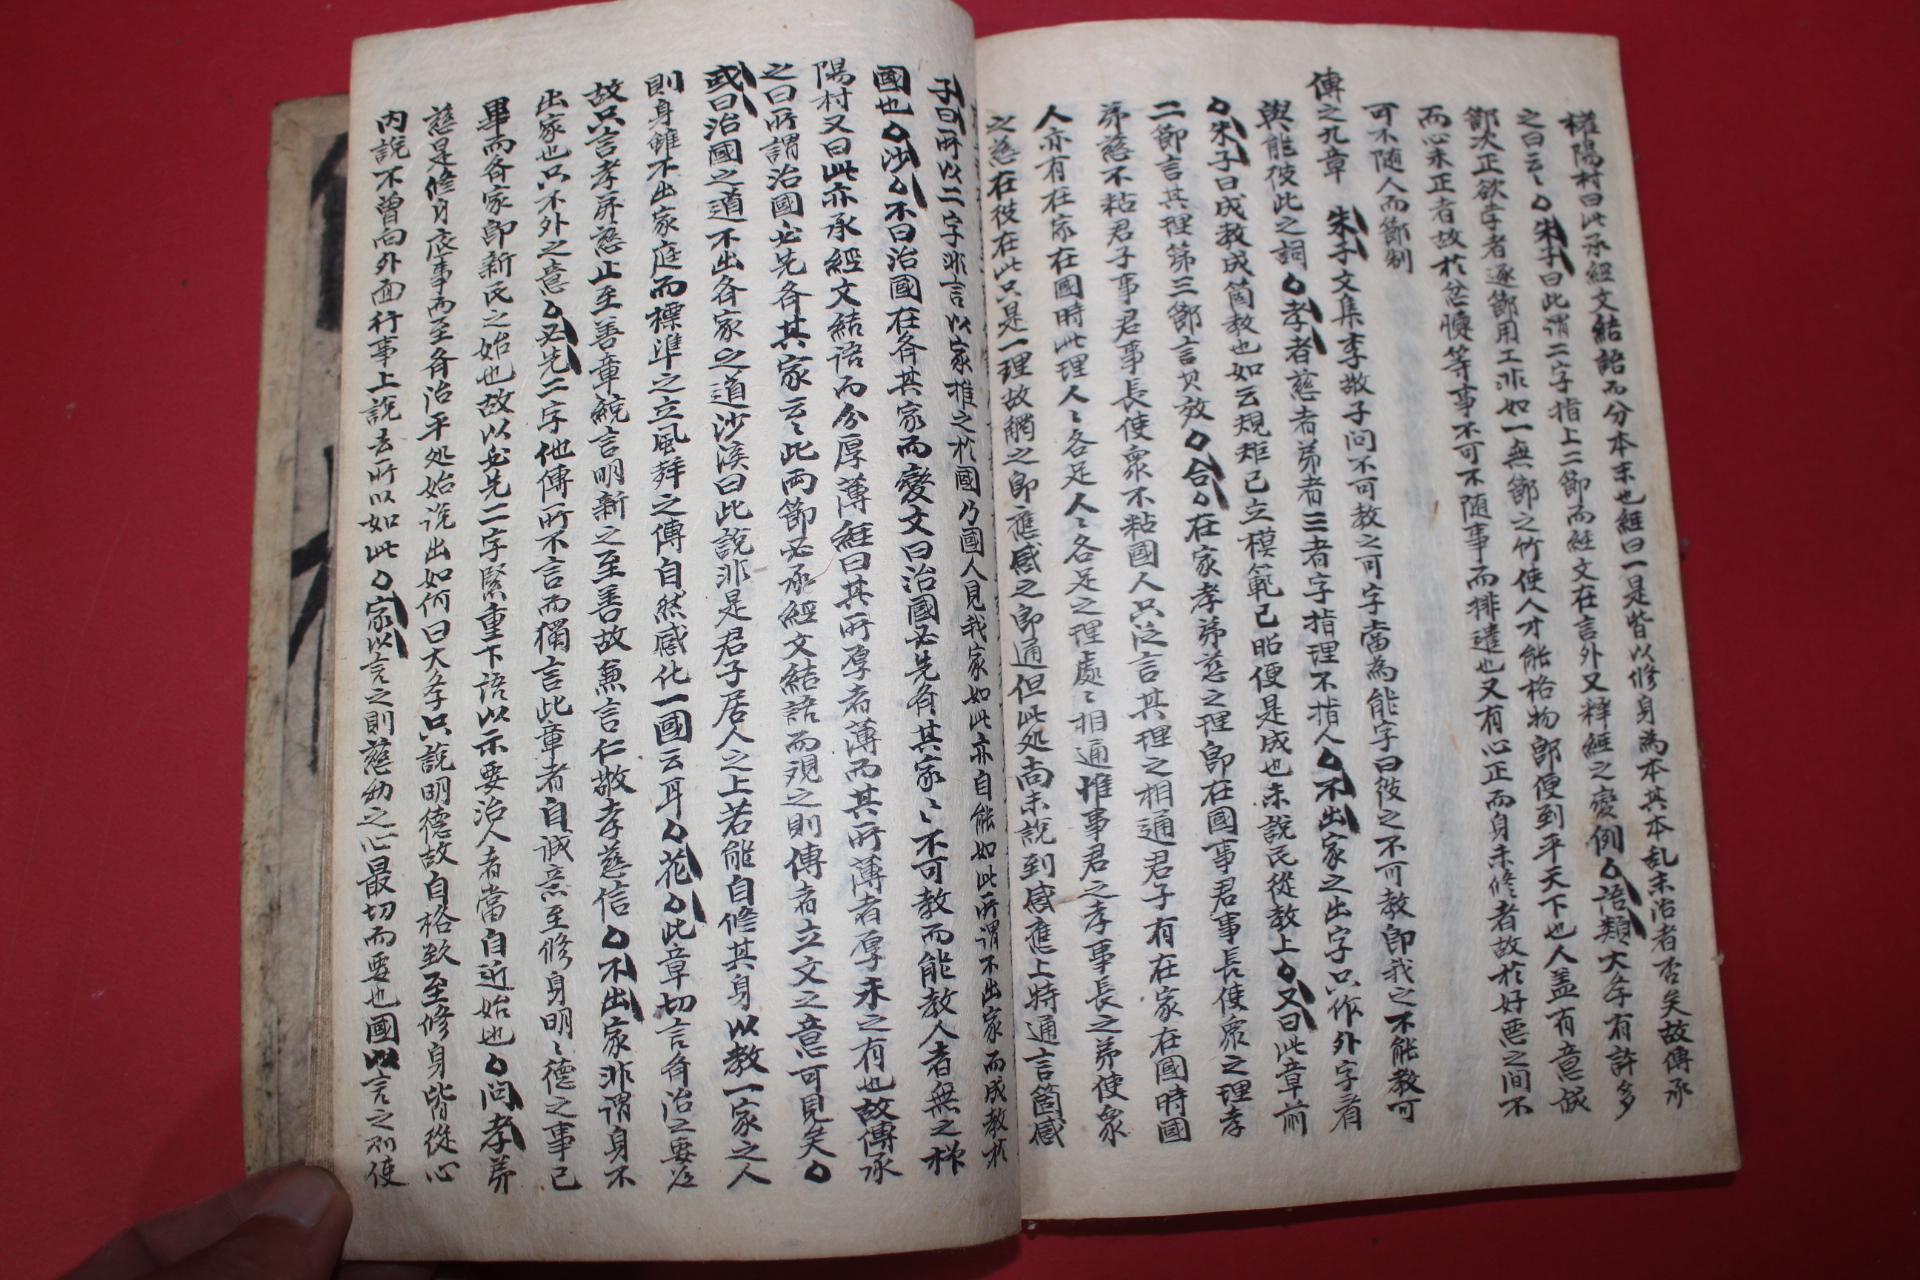 權陽村曰此承經文結語而分本末也經曰一是皆以修身為本其本乱末治者否矣故傳承
之曰云〻○朱子曰此謂二字指上二節而經文在言外又釋經之變例○語類大学有許多
節次正欲学者逐節用工非如一無節之竹使人才能格物即便到平天下也人盖有意誠
而心未正者故於忿懥等事不可不随事而排遣也又有心正而身未修者故於好惡之间不
可不随人而節制
傳之九章　朱子文集李敬子问不可教之可字當為能字曰彼之不可教即我之不能教可
與能彼此之詞○孝者慈者弟者三者字指理不指人○不出家之出字只作外字看
○朱子曰成教成箇教也如云規矩已立模範已昭便是成也未說民從教上○又曰此章前
二節言其理第三節言其效○合○在家孝弟慈之理即在國事君事長使衆之理孝
弟慈不粘君子事君事長使衆不粘國人只泛言其理之相通君子有在家在國時國
人亦有在家在國時此理人〻各足人〻各足之理處〻相通惟事君之孝事長之弟使衆
之慈在彼在此只是一理故觸之即應感之即通但此処尚未說到感應上特通言箇感
子曰所以二字非言以家推之於國乃國人見我家如此亦自能如此所谓不出家而成教於
國也○沙○不曰治國在齐其家而變文曰治國必先齐其家〻不可教而能教人者無之様
陽村又曰此亦承經文結語而分厚薄經曰其所厚者薄而其所薄者厚未之有也故傳承
之曰所謂治國必先各其家云〻此両節必承經文結語而現之則傳者立文之意可見矣○
或曰治國之道不出各家之道沙溪曰此說非是君子居人之上若能自修其身以教一家之人
則身雖不出家庭而標準之立風聲之傳自然感化一國云耳○花○此章切言斉治之要
故只言孝弟慈止至善章統言明新之至善故兼言仁敬孝慈信○不出家非谓身不
出家也只不外之意○必先二字他傳所不言而獨言此章者自誠意至修身明〻德之事已
畢而各家即新民之始也故以必先二字緊重下語以示要治人者當自近始也○问孝弟
慈是修身底事而至斉治平処始说出如何曰大学只說明德故自格致至修身皆從心
内說不曾向外面行事上說去所以如此○家以言之則慈幼之心最切而要也國以言之則使